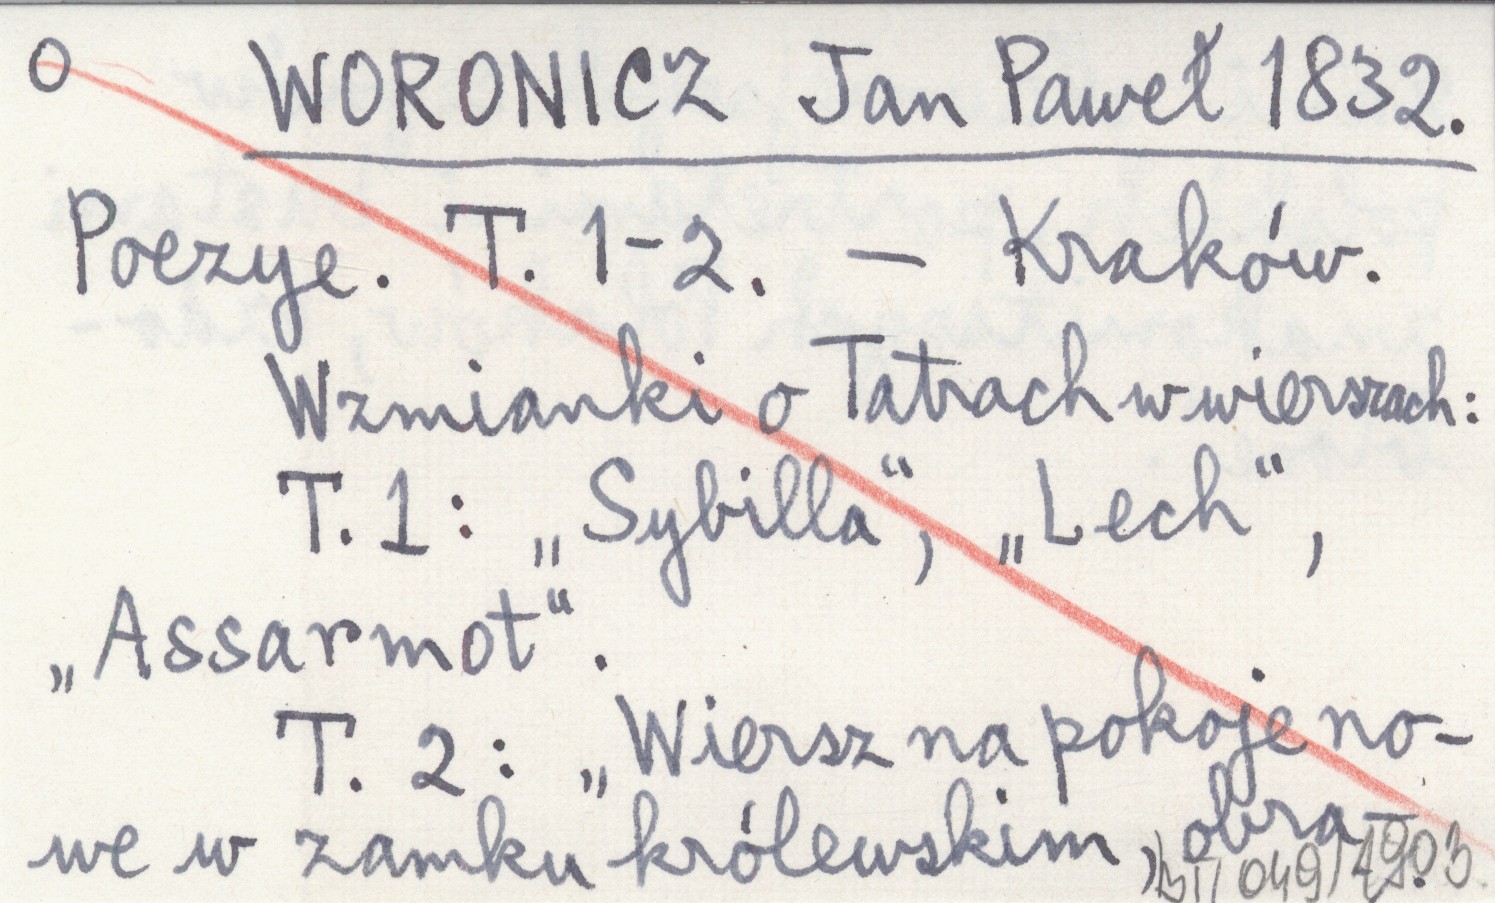 O WORONICZ Jan Paweł 1832.
Poezye. T. 1-2. — Kraków.
Wzmianki o Tatrach w wierszach:
T. 1: „Sybilla“, „Lech“,
„Assarmot“.
T. 2: „Wiersz na pokoje no-
we w zamku królewskim, obra-
049 1903